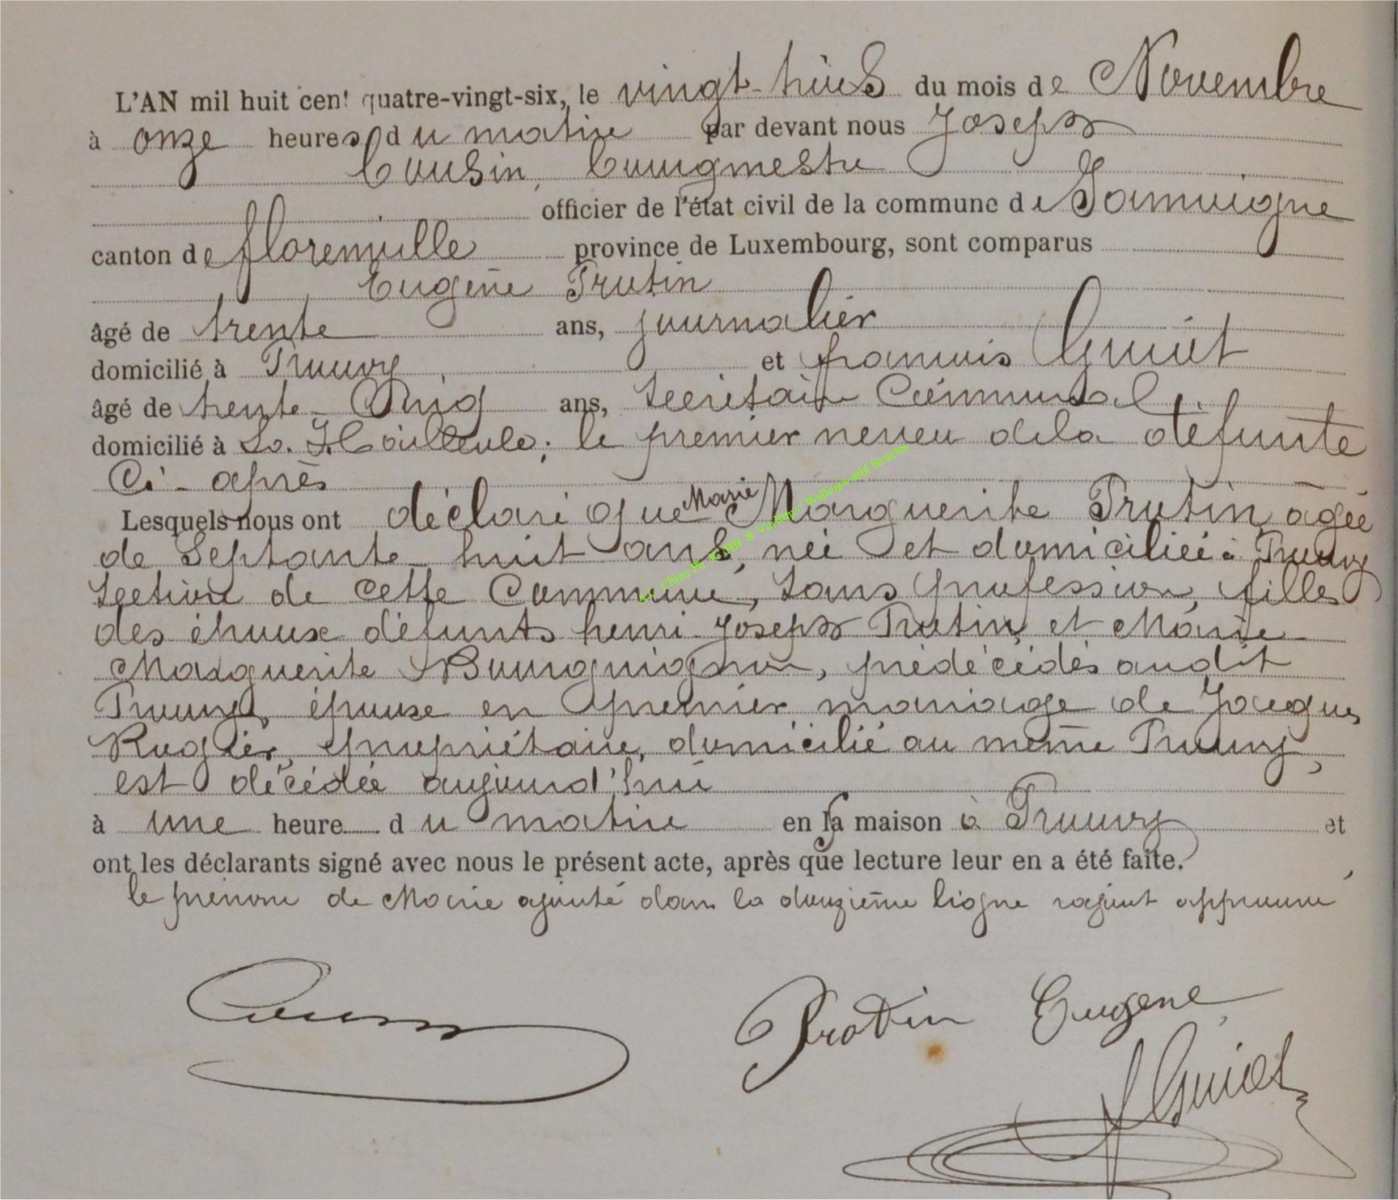 L'AN mil huit cent quatre-vingt-six, le vingt-huit du mois de Novembre
à onze heures du matin par devant nous Joseph
Cousin, bourgmestre
officier de l'état civil de la commune de Sommière
canton de florenville province de Luxembourg, sont comparus
Eugène Protin
âgé de trente ans, journalier
domicilié à Prouvy et françois Guiot
âgé de trente-Cinq ans, Secrétaire Communal
domicilié à La Hailleule; le premier neveu de la défunte
Ci-après
Lesquels nous ont déclaré que Marie Marguerite Protin, âgée
de Septante huit ans, née et domiciliée à Prouvy
Section de cette Commune, Sans profession, fille
des époux défunts henri-Joseph Protin et Marie
Marguerite Bourguignon, prédécédés audit
Prouvy, épouse en premier mariage de Jacques
Rogier, propriétaire, domicilié au même Prouvy,
est décédée aujourd'hui
à une heure du matin en sa maison à Prouvy et
ont les déclarants signé avec nous le présent acte, après que lecture leur en a été faite.
le prénom de Marie ajouté dans la deuxième ligne rajout approuvé
Cousin
Protin Eugene
f Guiot